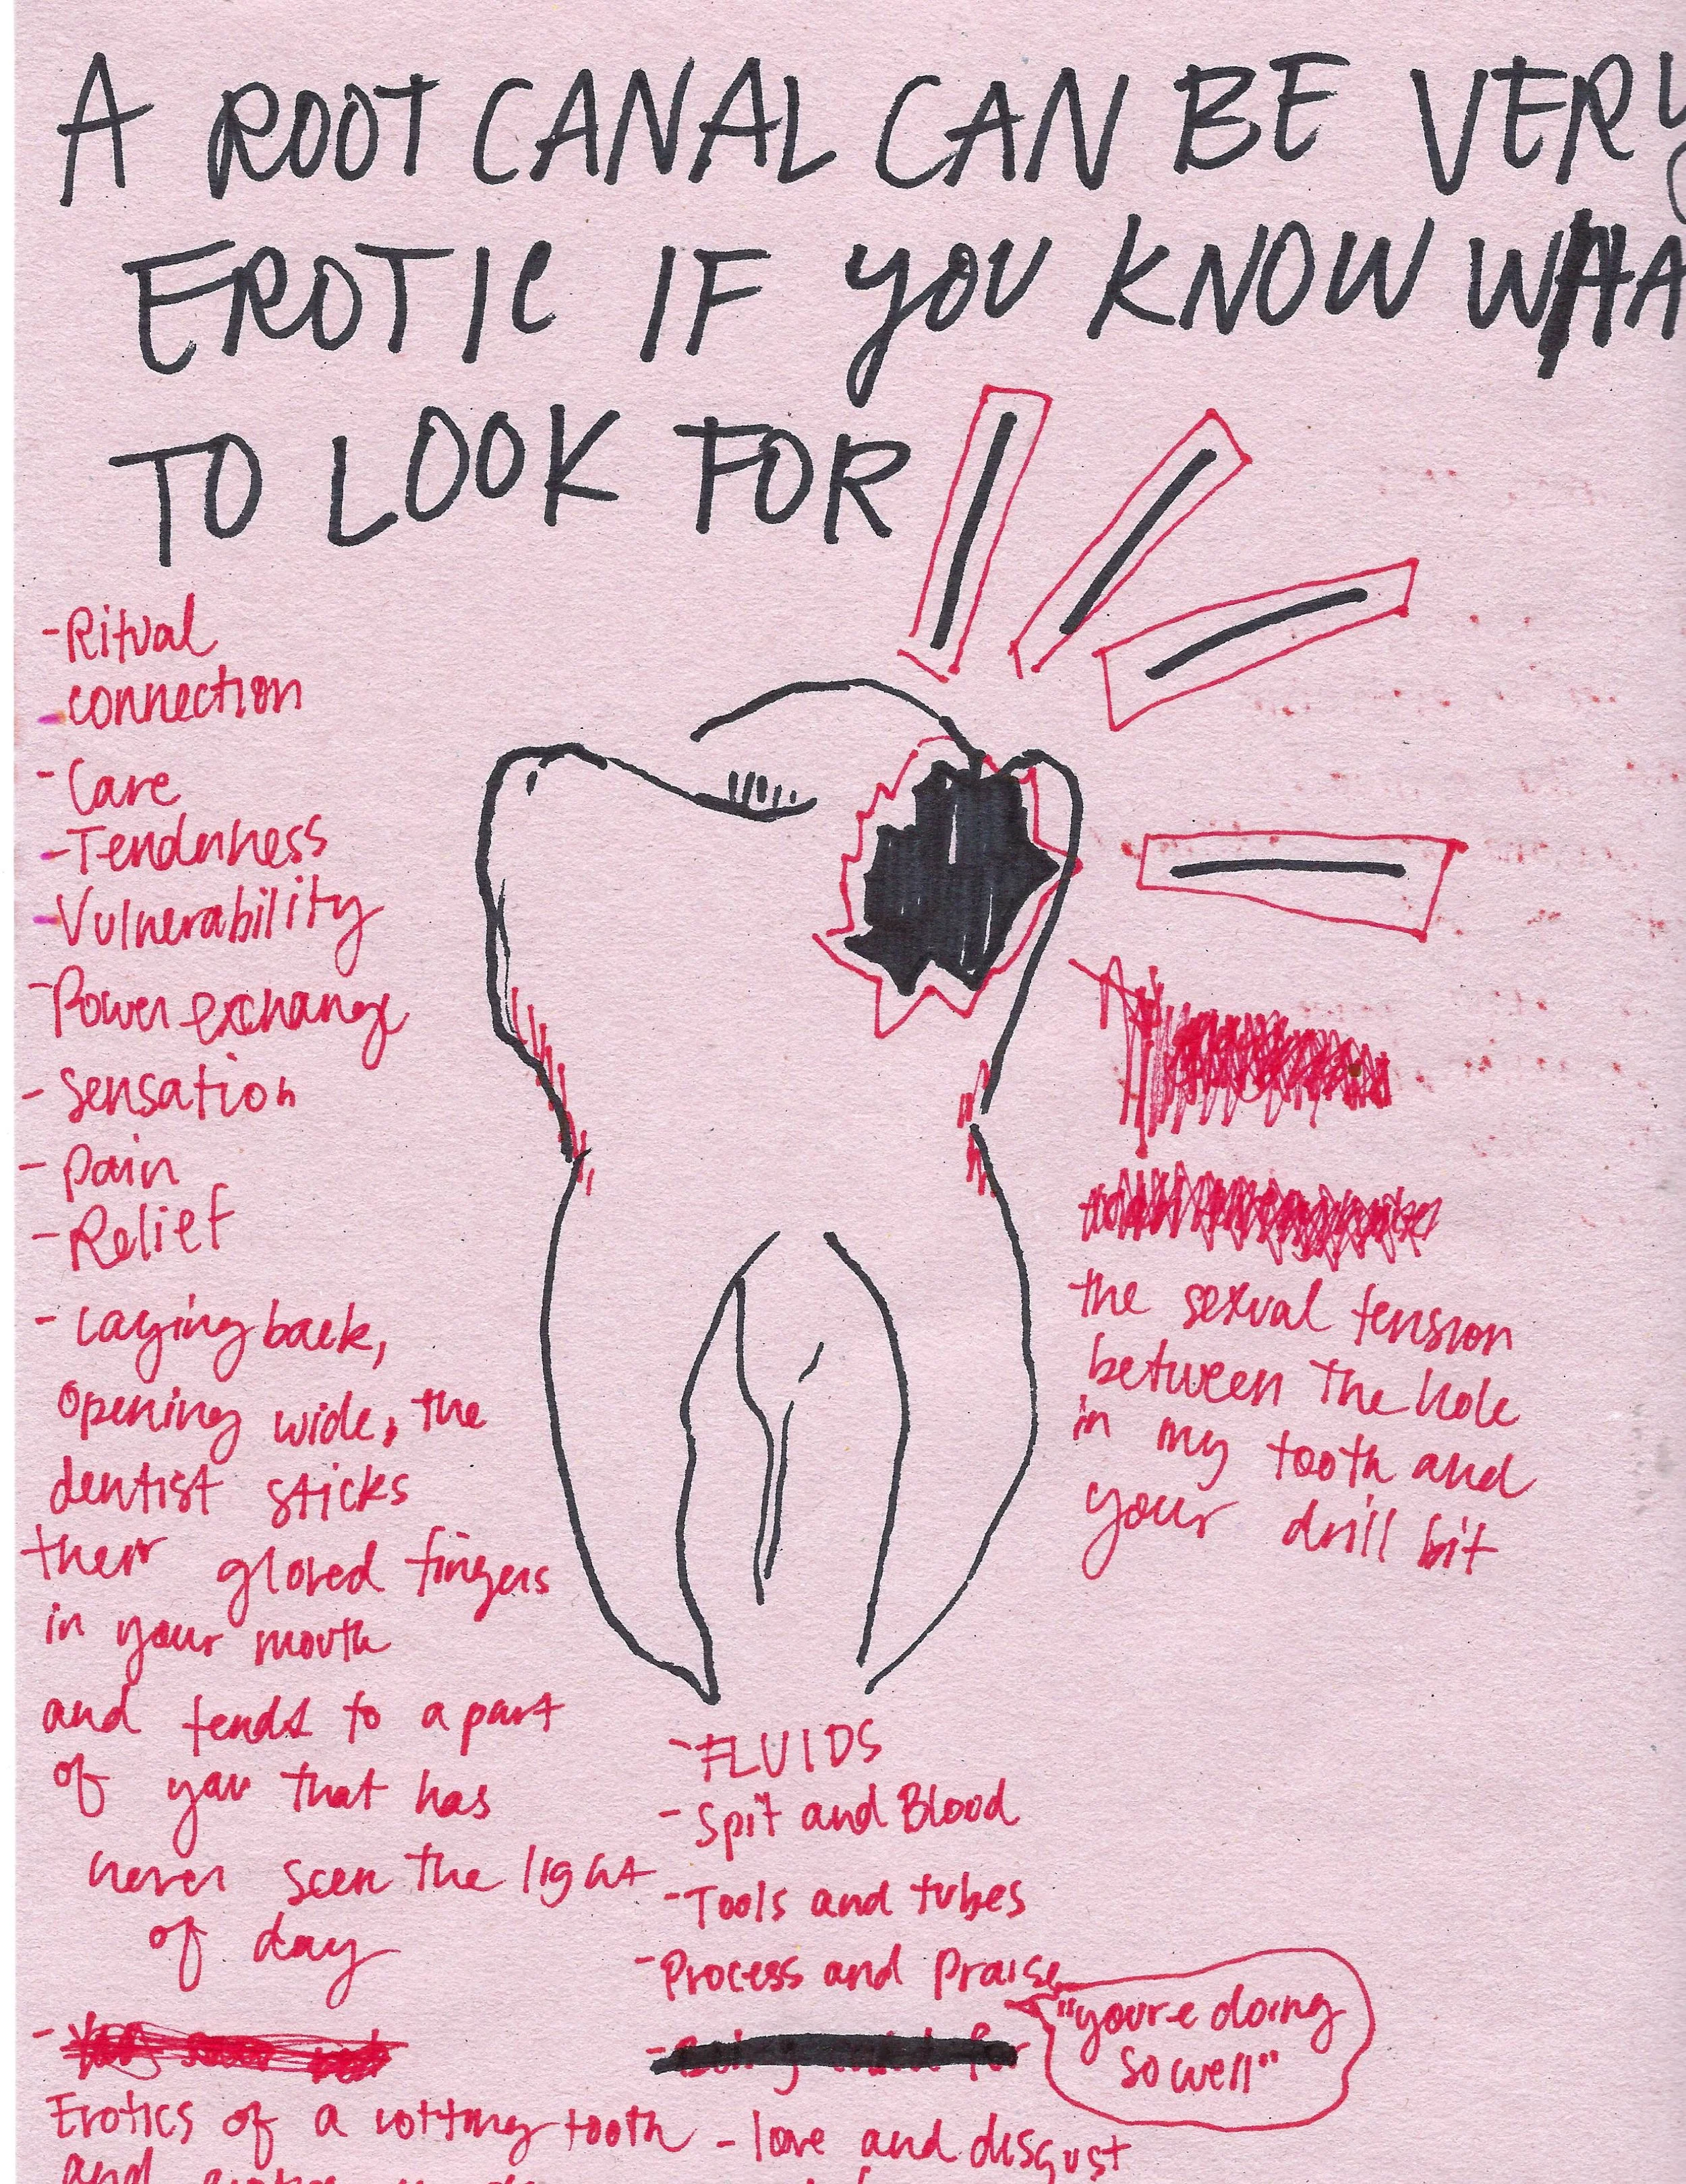 A ROOT CANAL CAN BE VERY
EROTIC IF YOU KNOW WHA
TO LOOK FOR
-Ritual
-connection
-Care
-Tenderness
-Vulnerability
-Power exchange
- sensation
- pain
-Relief
- Laying back,
opening wide, the
dentist sticks
their gloved fingers
in your mouth
and tends to a part
of you that has
never seen the light
of day
-
Erotics of a rotting tooth
and
the sexual tension
between the hole
in my tooth and
your drill bit
-FLUIDS
- Spit and Blood
-Tools and tubes
-Process and Praise
"you're doing
so well"
- love and disgust